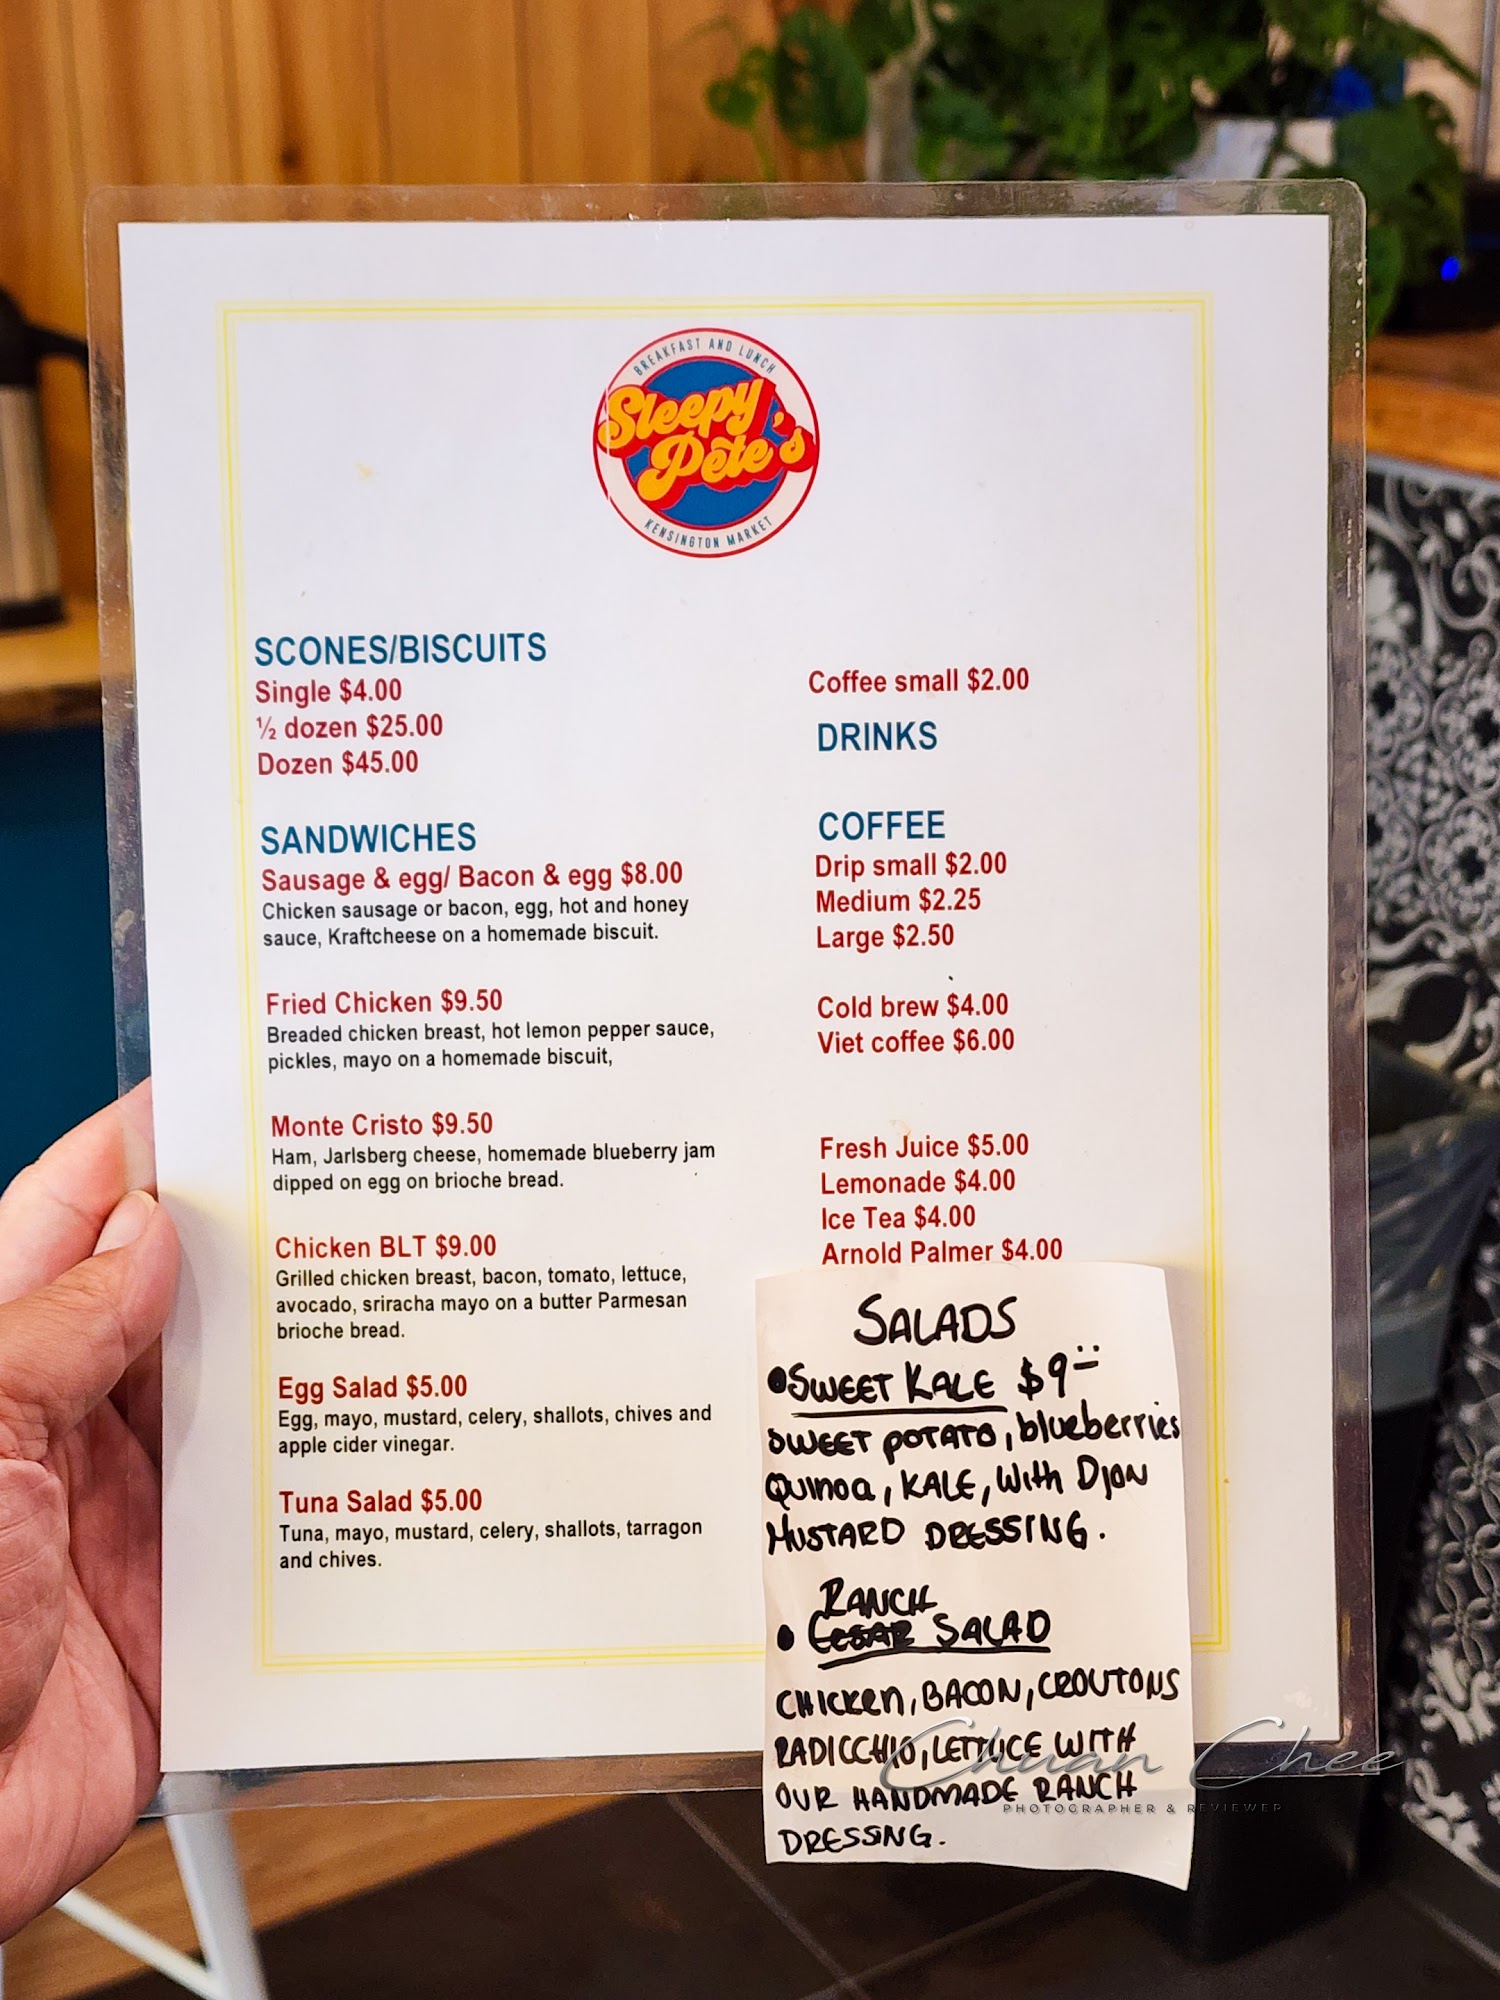 BREAKFAST AND LUNCH
Sleepy
Pete's
KENSINGTON MARKET
SCONES/BISCUITS
Single $4.00
½ dozen $25.00
Dozen $45.00
SANDWICHES
Sausage & egg/ Bacon & egg $8.00
Chicken sausage or bacon, egg, hot and honey
sauce, Kraftcheese on a homemade biscuit.
Fried Chicken $9.50
Breaded chicken breast, hot lemon pepper sauce,
pickles, mayo on a homemade biscuit,
Monte Cristo $9.50
Ham, Jarlsberg cheese, homemade blueberry jam
dipped on egg on brioche bread.
Chicken BLT $9.00
Grilled chicken breast, bacon, tomato, lettuce,
avocado, sriracha mayo on a butter Parmesan
brioche bread.
Egg Salad $5.00
Egg, mayo, mustard, celery, shallots, chives and
apple cider vinegar.
Tuna Salad $5.00
Tuna, mayo, mustard, celery, shallots, tarragon
and chives.
Coffee small $2.00
DRINKS
COFFEE
Drip small $2.00
Medium $2.25
Large $2.50
Cold brew $4.00
Viet coffee $6.00
Fresh Juice $5.00
Lemonade $4.00
Ice Tea $4.00
Arnold Palmer $4.00
SALADS
•SWEET KALE $9
SWEET POTATO, blueberries
Quinoa, KALE, With Dijon
MUSTARD DRESSING.
RANCH
• CESAR SALAD
CHICKEN, BACON, CROUTONS
RADICCHIO, LETTUCE WITH
OUR HANDMADE RANCH
DRESSING.
Chuan Chee
PHOTOGRAPHER & REVIEWER